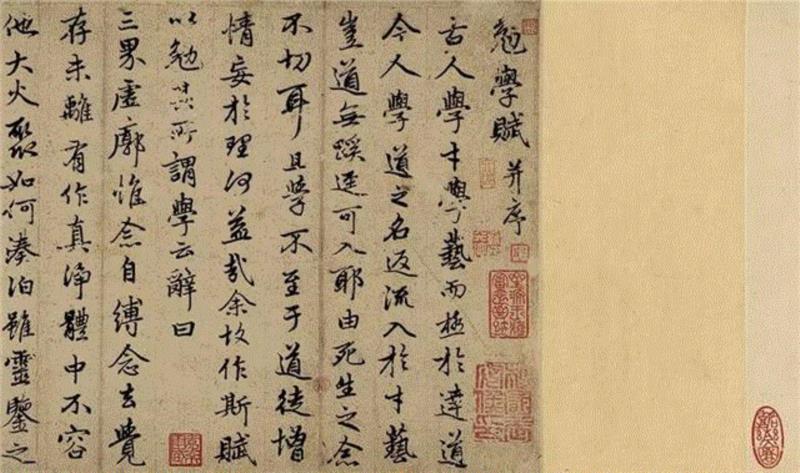 勉學賦并序
古人學才學藝而極於達道
今人學道之名返流入於才藝
豈道無蹊逕可入耶由死生之念
不切耳且學不至于道徒增
情妄於理何益哉余故作斯賦
以勉其所謂學云辭曰
三界虛廓惟念自縛念去覺
存未離有作真淨體中不容
他大火聚如何湊泊雖靈鑒之